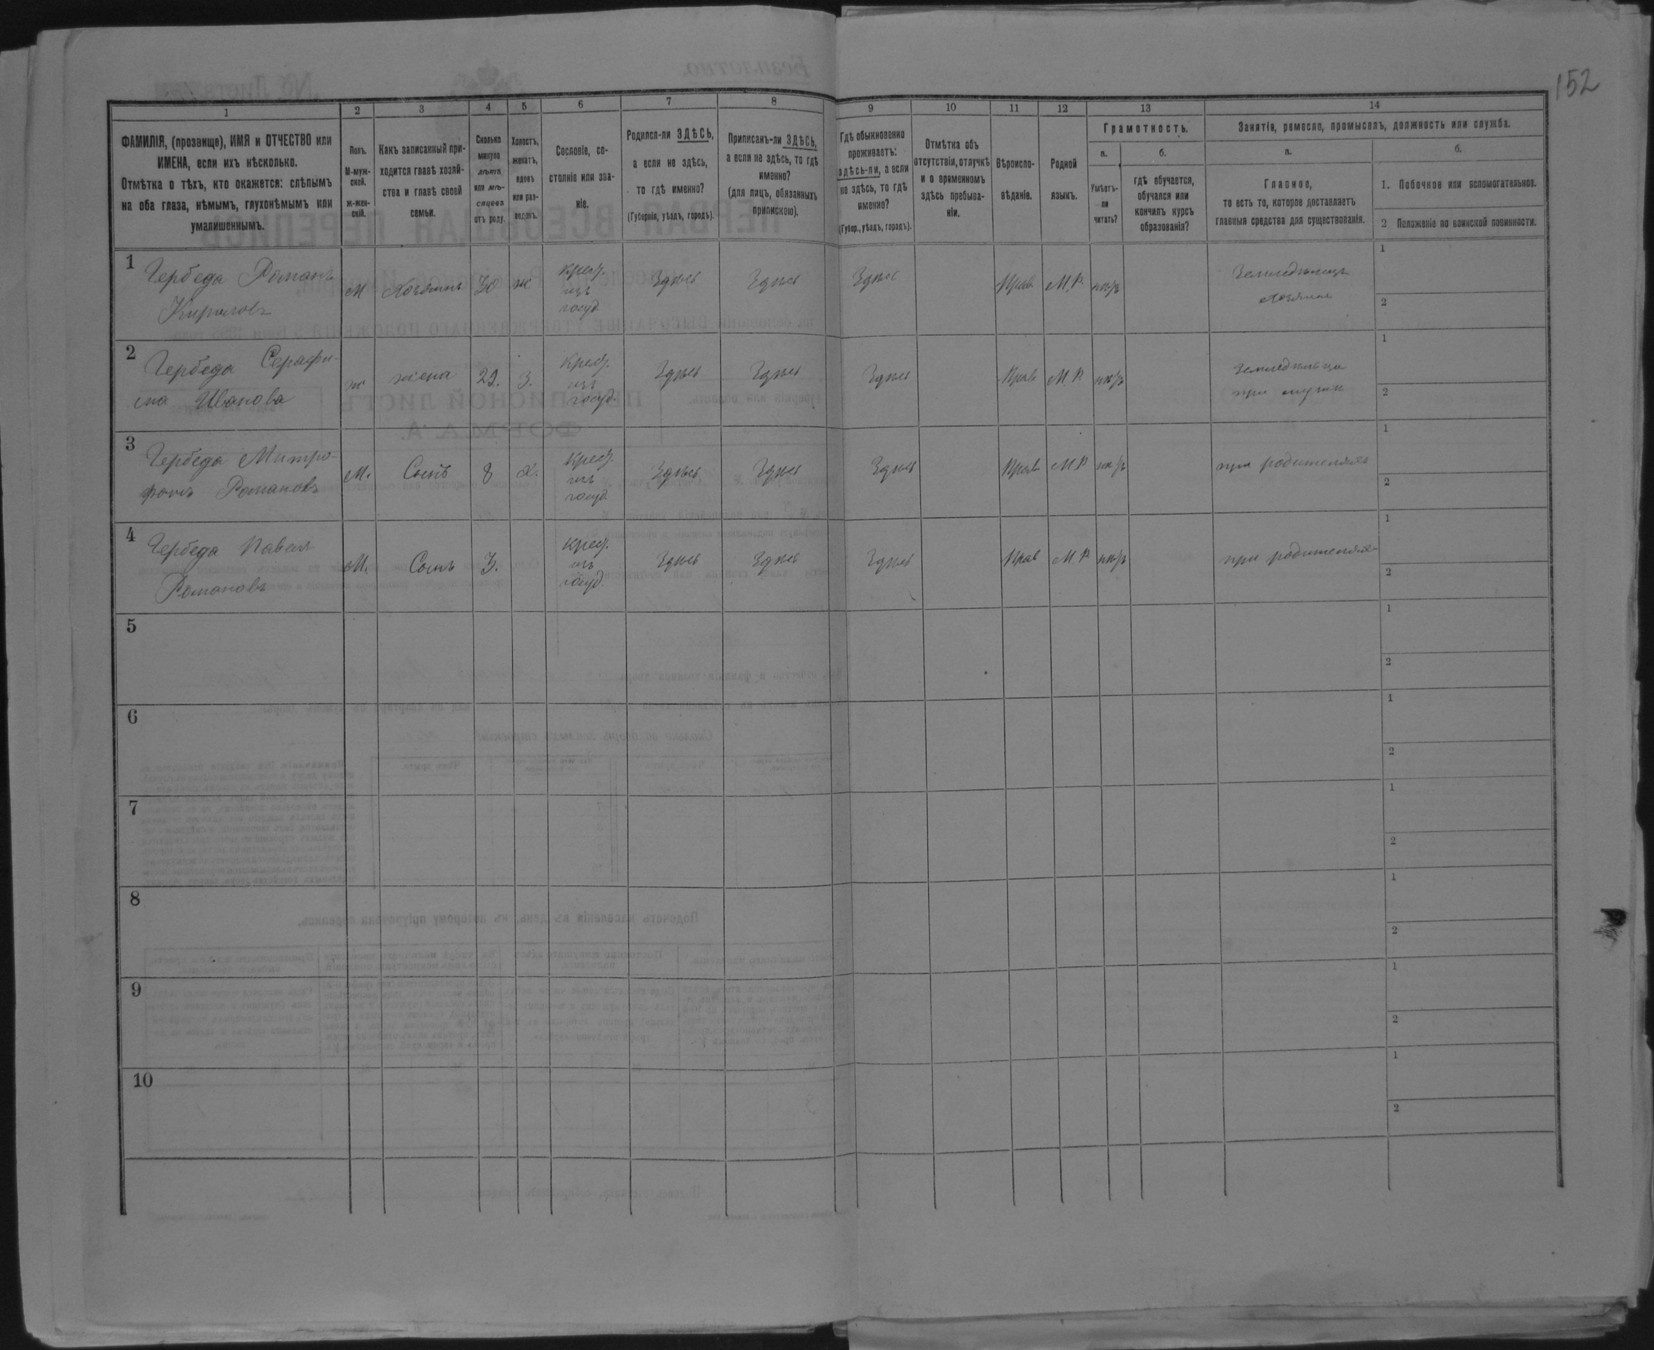 152
1 2 3 4 5 6 7 8 9 10 11 12 13 14
ФАМИЛІЯ, (прозвище), ИМЯ и ОТЧЕСТВО или
ИМЕНА, если ихъ нѣсколько.
Отмѣтка о тѣхъ, кто окажется: слѣпымъ
на оба глаза, нѣмымъ, глухонѣмымъ или
умалишеннымъ.
Полъ.
М-муж-
ской.
ж-жен-
скій.
Какъ записанный при-
ходится главѣ хозяй-
ства и главѣ своей
семьи.
Сколько
минуло
лѣтъ
или мѣ-
сяцевъ
отъ роду.
Холостъ,
женатъ,
вдовъ
или раз-
веденъ.
Сословіе, со-
стояніе или зва-
ніе.
Родился-ли ЗДѢСЬ,
а если не здѣсь,
то гдѣ именно?
(Губернія, уѣздъ, городъ).
Приписанъ-ли ЗДѢСЬ,
а если не здѣсь, то гдѣ
именно?
(для лицъ, обязанныхъ
припискою).
Гдѣ обыкновенно
проживаетъ:
здѣсь-ли, а если
не здѣсь, то гдѣ
именно?
(Губер., уѣздъ, городъ).
Отмѣтка объ
отсутствіи, отлучкѣ
и о временномъ
здѣсь пребыва-
ніи.
Вѣроиспо-
вѣданіе.
Родной
языкъ.
Грамотность.
а.
Умѣетъ-
ли
читать?
б.
гдѣ обучается,
обучался или
кончилъ курсъ
образованія?
Занятія, ремесло, промыселъ, должность или служба.
а.
Главное,
то есть то, которое доставляетъ
главныя средства для существованія.
б.
1. Побочное или вспомогательное.
2 Положеніе по воинской повинности.
1
Гербеда Романъ
Кириловъ
М Хозяинъ ж
Крест.
изъ
госуд.
Здѣсь Здѣсь Здѣсь Прав М.Р
Земледѣлецъ
1
2
2
Гербеда Серафи-
ма Иванова
ж жена 29. З.
Крест.
изъ
госуд.
Здѣсь Здѣсь Здѣсь Прав М Р
при мужѣ
1
2
3
Гербеда Митро-
фанъ Романовъ
М. Сынъ 8 Х.
Крест.
изъ
госуд.
Здѣсь Здѣсь Здѣсь Прав М Р
при родителяхъ
1
2
4
Гербеда Павел
Романовъ
М. Сынъ 3.
Крест.
изъ
госуд.
Здѣсь Здѣсь Здѣсь Прав М Р
при родителях
1
2
5
1
2
6
1
2
7
1
2
8
1
2
9
1
2
10
1
2